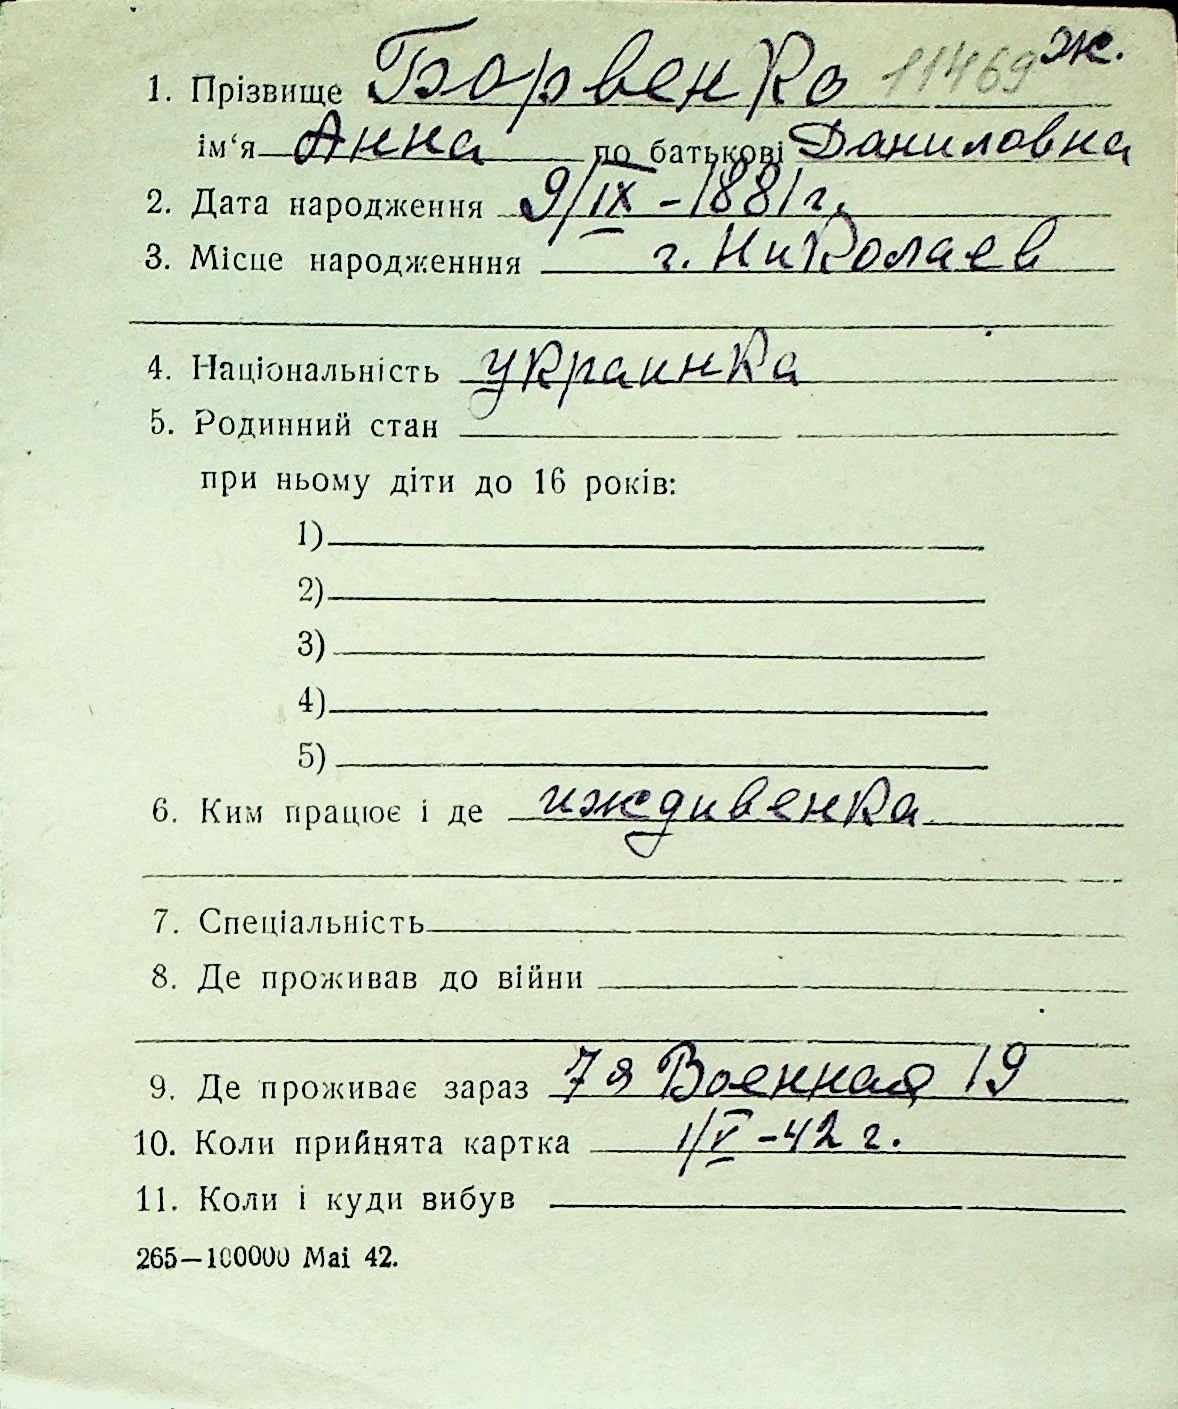 ж.
1. Прізвище Борвенко 11469
ім‘я Анна по батькові Даниловна
2. Дата народження 9/IX - 1881 г.
3. Місце народженння г. Николаев
4. Національність украинка
5. Родинний стан
при ньому діти до 16 років:
1)
2)
3)
4)
5)
6. Ким працює і де иждивенка
7. Спеціальність
8. Де проживав до війни
9. Де проживає зараз 7я Военная 19
10. Коли прийнята картка 1/V - 42 г.
11. Коли і куди вибув
265—100000 Mai 42.